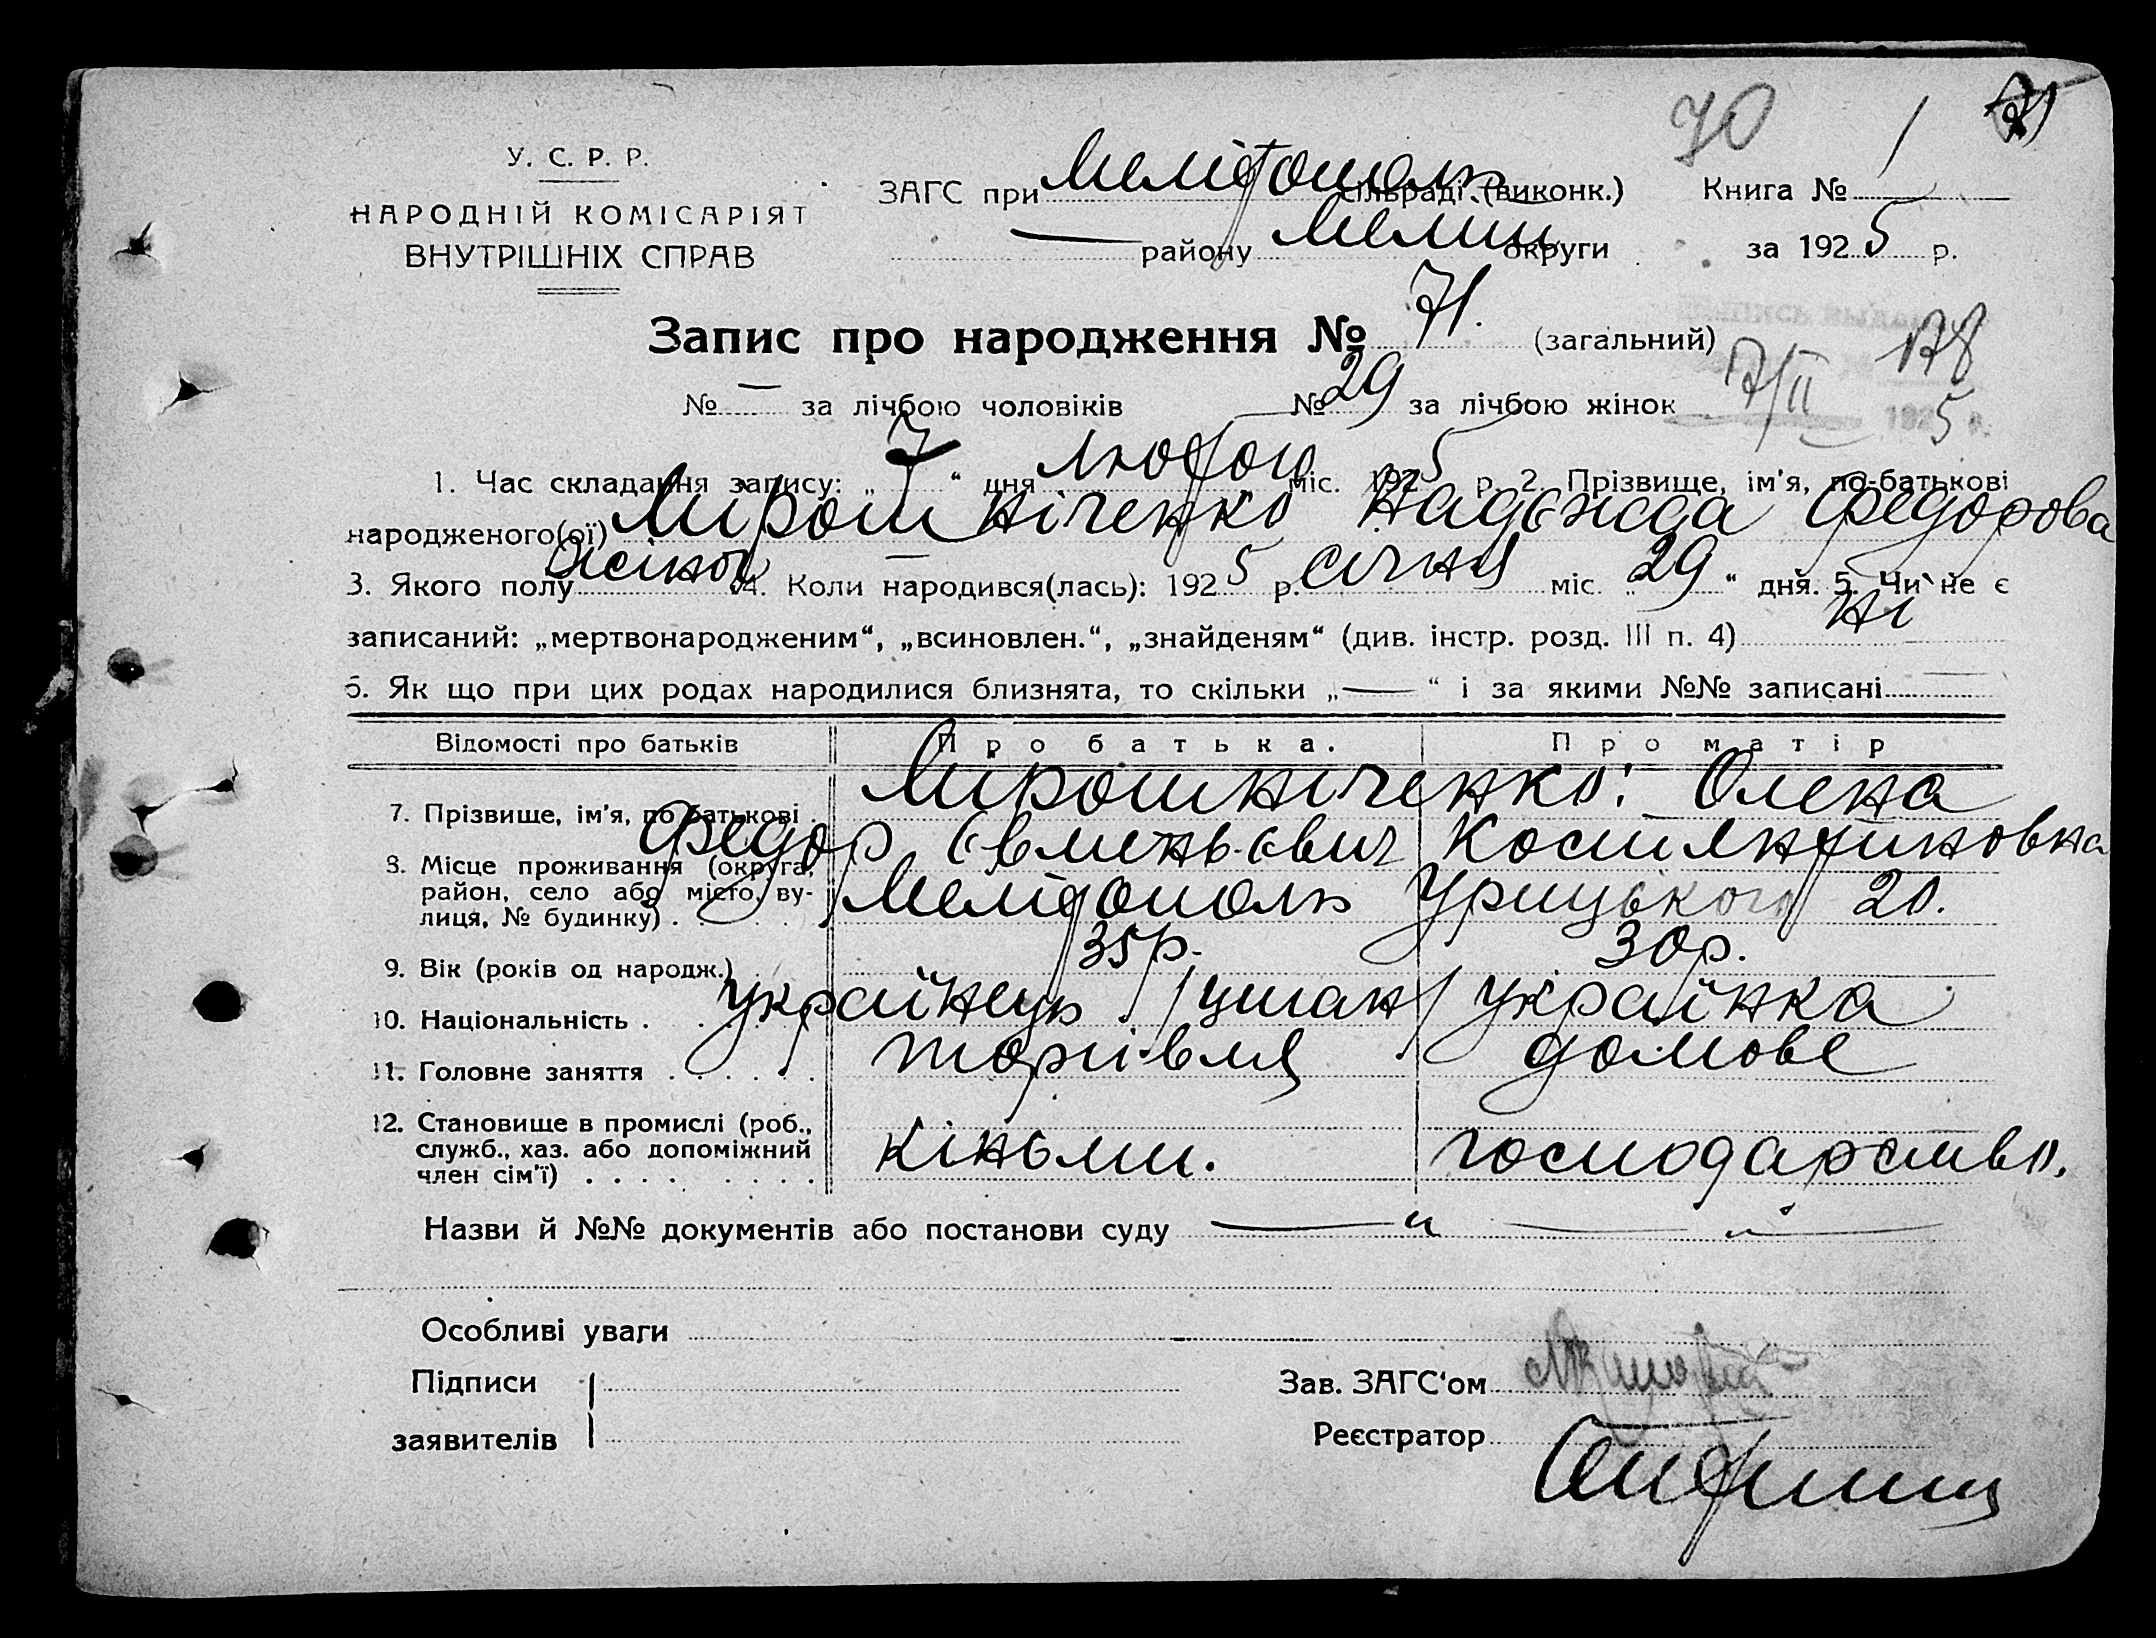 70 1 71
У. С. Р. Р.
НАРОДНІЙ КОМІСАРІЯТ
ВНУТРІШНІХ СПРАВ
ЗАГС при Мелітополь сільраді (виконк.) Книга № 1
— району Мелит округи за 1925 р.
Запис про народження № 71. (загальний)
№ — за лічбою чоловіків № 29 за лічбою жінок 7/II 178 1925 р.
1. Час складання запису: „7“ дня лютого міс. 1925 р. 2. Прізвище, ім'я, по-батькові
народженого(ої) Мірошніченко Надежда Федорова
3. Якого полу жіноч 4. Коли народився(лась): 1925 р. січня міс. „29“ дня. 5. Чи не є
записаний: „мертвонародженим“, „всиновлен.“, „знайденям“ (див. інстр. розд. III п. 4) ні
6. Як що при цих родах народилися близнята, то скільки „—“ і за якими №№ записані —
Відомості про батьків Про батька. Про матір
7. Прізвище, ім'я, по батькові Мірошніченко: Олена
Федор Євменьєвич Костянтиновна
8. Місце проживання (округа,
район, село або місто, ву-
лиця, № будинку) . . . Мелітополь Урицького 20.
9. Вік (років од народж.) . 35р. 30р.
10. Національність . . . українець /циган/ українка
11. Головне заняття . . . . . . торгівля домове
12. Становище в промислі (роб.,
служб., хаз. або допоміжний
член сім'ї) . . . . . . . . . кіньми. господарство.
Назви й №№ документів або постанови суду — „ — „ —
Особливі уваги
Підписи
заявителів
Зав. ЗАГС'ом
Реєстратор